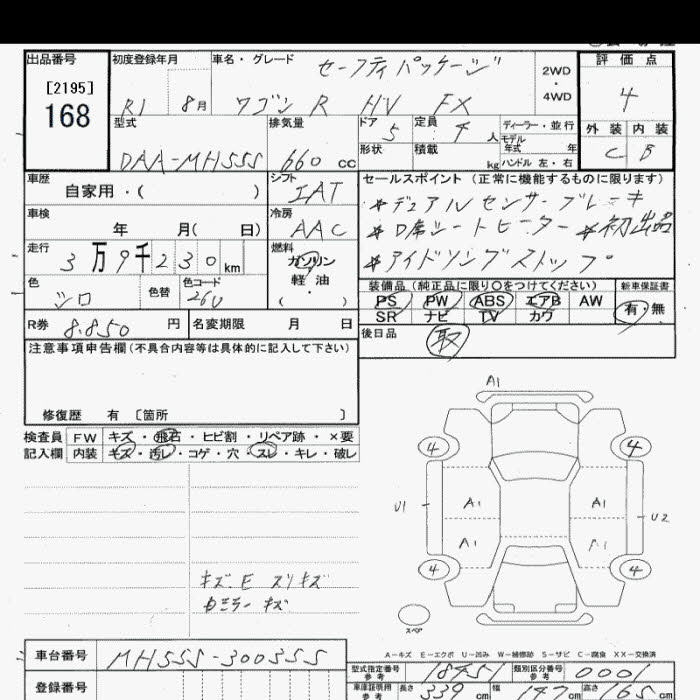 出品番号 初度登録年月 車名・グレード セーフティパッケージ 2WD・4WD 評価点
[2195]
168 R1 8月 ワゴン R HV FX 4
型式 排気量 ドア 5 定員 4人 ディーラー・並行 外装 内装
モデル年式 年
DAA-MH55S 660cc 形状 積載 kg ハンドル 左・右 C B
車歴 シフト セールスポイント (正常に機能するものに限ります)
自家用・( ) IAT *デュアルセンサーブレーキ
車検 冷房 *D席シートヒーター *初出品
年 月( 日) AAC *アイドリングストップ
走行 3万9千230km 燃料 ガソリン
軽油
・( )
色 シロ 色替 色コード 26U
装備品 (純正品に限り○をつけてください) 新車保証書
PS PW ABS エアB AW 有・無
SR ナビ TV カワ
R券 8.850円 名変期限 月 日 後日品 取
注意事項申告欄(不具合内容等は具体的に記入して下さい)
修復歴 有 〔箇所 〕
検査員 FW キズ・飛石・ヒビ割・リペア跡・×要
記入欄 内装 キズ・汚レ・コゲ・穴・スレ・キレ・破レ
A1
4 4
U1 A1 A1 U2
A1 A1
4 4
スペア
キズ.E スリキズ
ミラーキズ
A-キズ E-エクボ U-凹み W-補修跡 S-サビ C-腐食 XX-交換済
車台番号 MH55S-300355
型式指定番号 参考 18951 類別区分番号 参考 0001
登録番号 車庫証明用 参考 長さ 339cm 幅 147cm 高さ 165cm